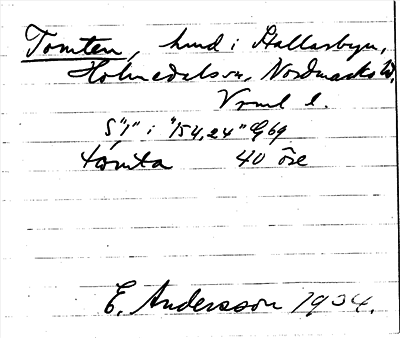 Tomten, hmd i Hallarbyn,
Holmedals sn, Nordmarks hd,
Vrml l.
S "1" i "154,24" G 69
tomta 40 öre
E. Andersson 1934.